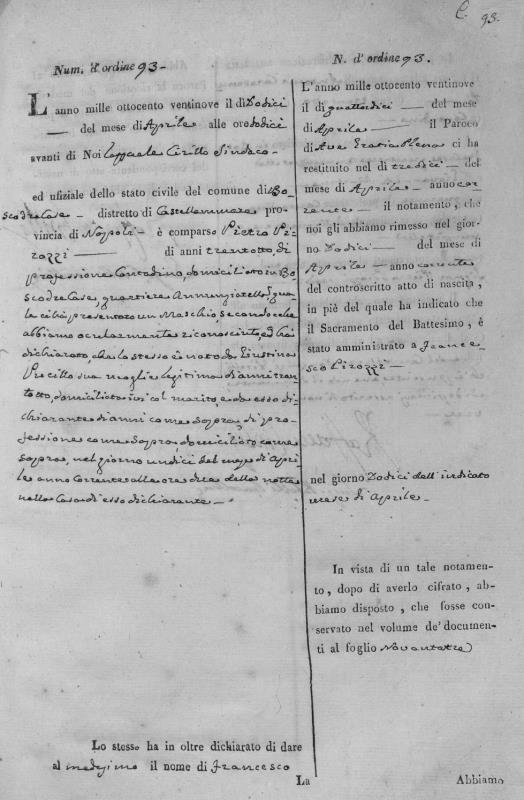 C. 93.
Num. d'ordine 93.
L'anno mille ottocento ventinove il di Dodici
del mese di Aprile alle ore dodici
avanti di Noi Cirillo Sindaco
ed ufiziale dello stato civile del comune di Bo-
scotrecase distretto di Castellammare pro-
vincia di Napoli è comparso Pietro Pi-
rozzi di anni trentotto, di
professione Contadino, domiciliato in Bo
scotrecase, quartiere Annunziatella, qua
le ci ha presentato un Maschio, secondo che
abbiamo ocularmente riconosciuto, ed ha
dichiarato, che lo stesso è nato da Giustina
sua moglie legitima di anni tren
totto, domiciliata ivi col marito, e da esso di-
chiarante di anni come sopra, di pro-
fessione come sopra, domiciliato come
sopra, nel giorno undici del mese di Apri-
le anno corrente alle ore della notte
nella Casa di esso dichiarante
Lo stesso ha in oltre dichiarato di dare
al medesimo il nome di Francesco
N. d'ordine 93.
L'anno mille ottocento ventinove
il di quattordici del mese
di Aprile il Paroco
di Ave Gratia Plena ci ha
restituito nel di tredici del
mese di Aprile anno cor-
rente il notamento, che
noi gli abbiamo rimesso nel gior-
no Dodici del mese di
Aprile anno corrente
del controscritto atto di nascita,
in piè del quale ha indicato che
il Sacramento del Battesimo, è
stato amministrato a France-
sco Pirozzi
nel giorno Dodici dell'indicato
mese di Aprile
In vista di un tale notamen-
to, dopo di averlo cifrato, ab-
biamo disposto, che fosse con-
servato nel volume de' documen-
ti al foglio Novantatre
La
Abbiamo